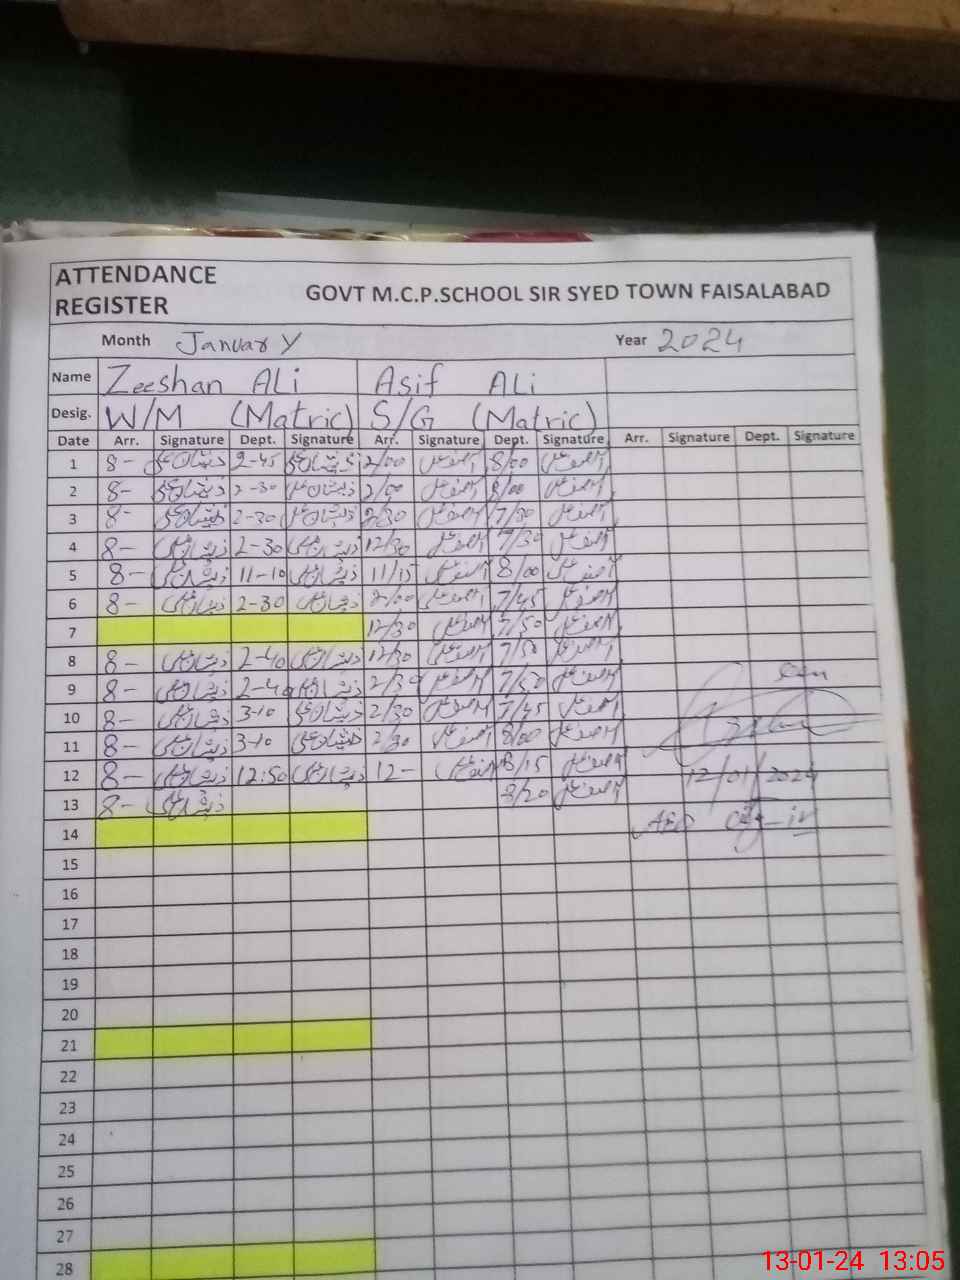 ATTENDANCE REGISTER
GOVT M.C.P.SCHOOL SIR SYED TOWN FAISALABAD
Month January Year 2024
Name Zeeshan ALi Asif ALi
Desig. W/M (Matric) S/G (Matric)
Date Arr. Signature Dept. Signature Arr. Signature Dept. Signature Arr. Signature Dept. Signature
1 8- ذیشان علی 2-45 ذیشان علی 2/00 آصف علی 8/00 آصف علی
2 8- ذیشان علی 2-30 ذیشان علی 2/00 آصف علی 8/00 آصف علی
3 8- ذیشان علی 2-30 ذیشان علی 2/30 آصف علی 7/30 آصف علی
4 8- ذیشان علی 2-30 ذیشان علی 12/30 آصف علی 7/30 آصف علی
5 8- ذیشان علی 11-10 ذیشان علی 11/15 آصف علی 8/00 آصف علی
6 8- ذیشان علی 2-30 ذیشان علی 2/00 آصف علی 7/45 آصف علی
7 12/30 آصف علی 7/50 آصف علی
8 8- ذیشان علی 2-40 ذیشان علی 12/30 آصف علی 7/50 آصف علی
9 8- ذیشان علی 2-40 ذیشان علی 2/30 آصف علی 7/50 آصف علی
10 8- ذیشان علی 3-10 ذیشان علی 2/30 آصف علی 7/45 آصف علی
11 8- ذیشان علی 3-10 ذیشان علی 2/30 آصف علی 8/00 آصف علی
12 8- ذیشان علی 12:50 ذیشان علی 12- آصف علی 8/15 آصف علی 12/01/2024
13 8- ذیشان علی 8/20 آصف علی
14 AEO
15
16
17
18
19
20
21
22
23
24
25
26
27
28
13-01-24 13:05